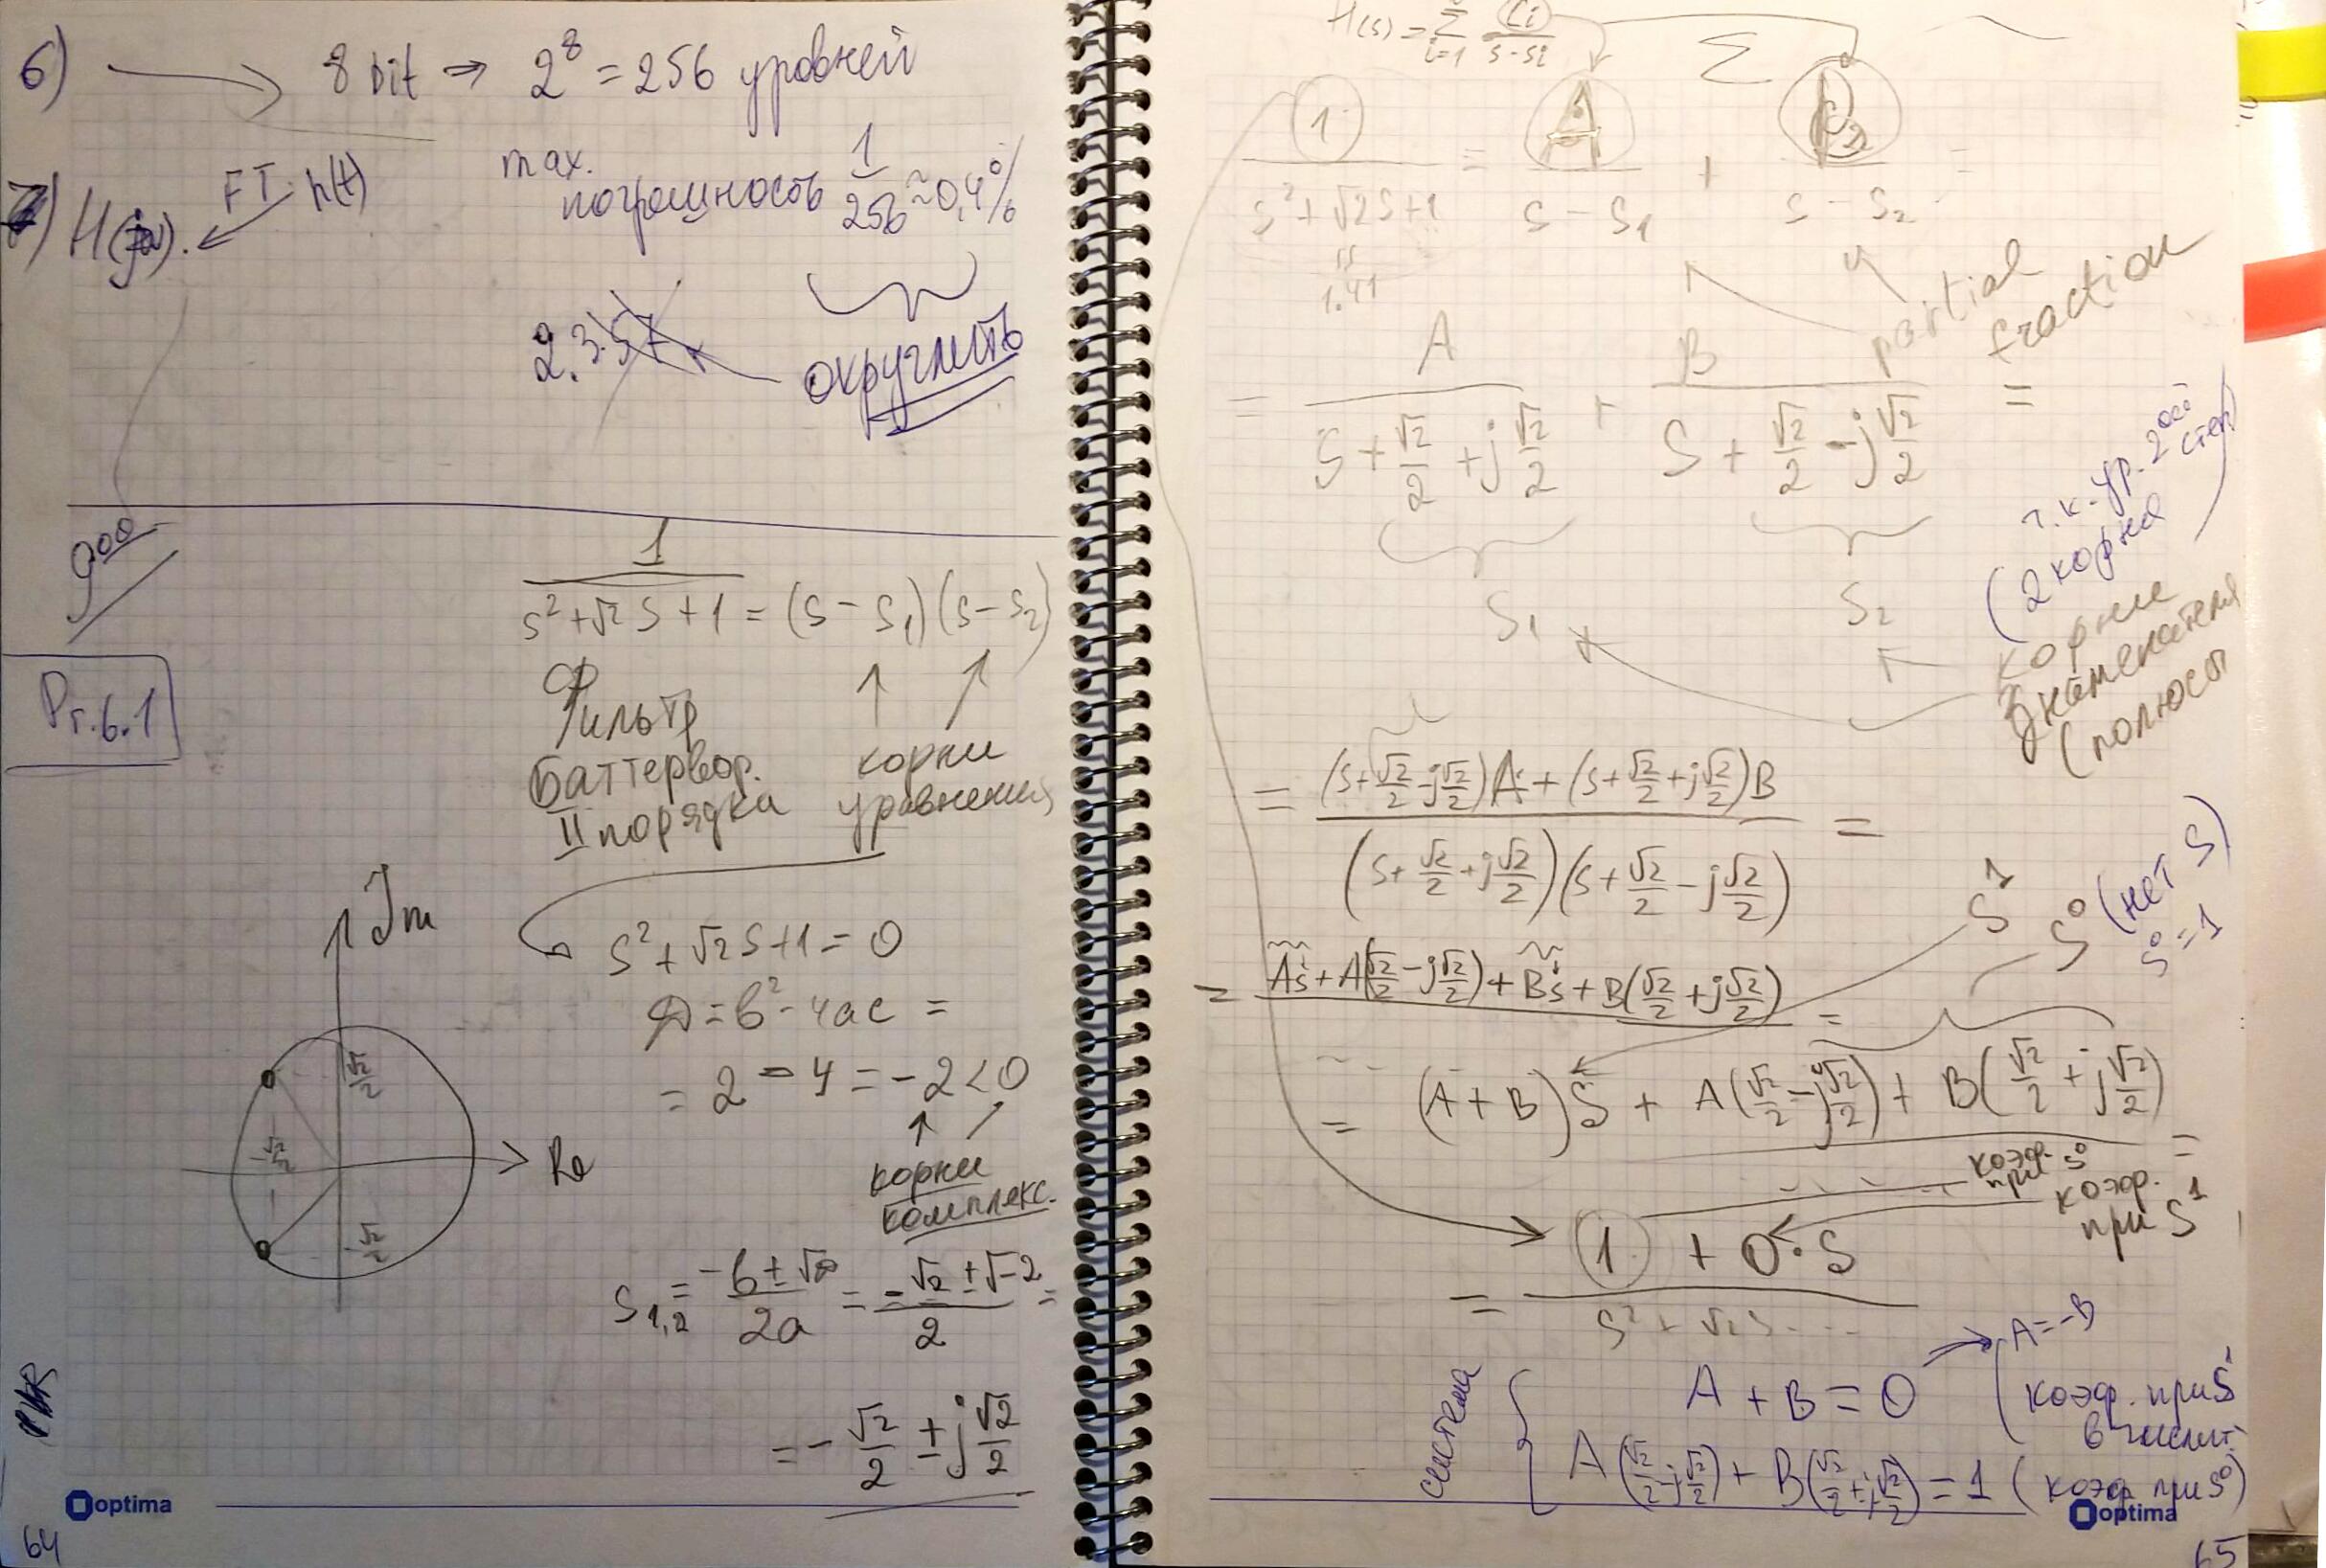 6) → 8 bit ⇒ 2⁸ = 256 уровней
max.
погрешность 1/256 ≈ 0,4%
7) H(jω). ← FT h(t)
2.357
округлить
900
1/(s² + √2 s + 1) = (s − s₁)(s − s₂)
Pr. 6.1
Фильтр
Баттервор.
II порядка
корни
уравнения
Im
s² + √2 s + 1 = 0
D = b² − 4ac =
= 2 − 4 = −2 < 0
√2/2
−√2/2
Re
−√2/2
корни
комплекс.
s₁,₂ = (−b ± √D)/2a = (−√2 ± √−2)/2 =
= −√2/2 ± j √2/2
optima
64
H(s) = Σ i=1 Ci/(s − si)
Σ
1/(s² + √2 s + 1) = A/(s − s₁) + /(s − s₂) =
1.41
partial
fraction
= A/(S + √2/2 + j √2/2) + B/(S + √2/2 − j √2/2) =
(т.к. ур. 2ой степ)
2 корня
S₁
S₂
корни
знаменателя
(полюсы
= ((s + √2/2 − j√2/2)A + (s + √2/2 + j√2/2)B)/((s + √2/2 + j√2/2)(s + √2/2 − j√2/2)) =
S¹
S⁰ (нет S)
S⁰ = 1
= As + A(√2/2 − j√2/2) + Bs + B(√2/2 + j√2/2) =
= (A + B)S + A(√2/2 − j√2/2) + B(√2/2 + j√2/2) =
коэф. при s⁰
коэф.
при S¹
= (1 + 0·S)/(s² + √2 s ...
A = −B
система
A + B = 0
(коэф. при S
в числит.
A(√2/2 − j√2/2) + B(√2/2 + j√2/2) = 1 (коэф при S⁰)
optima
65